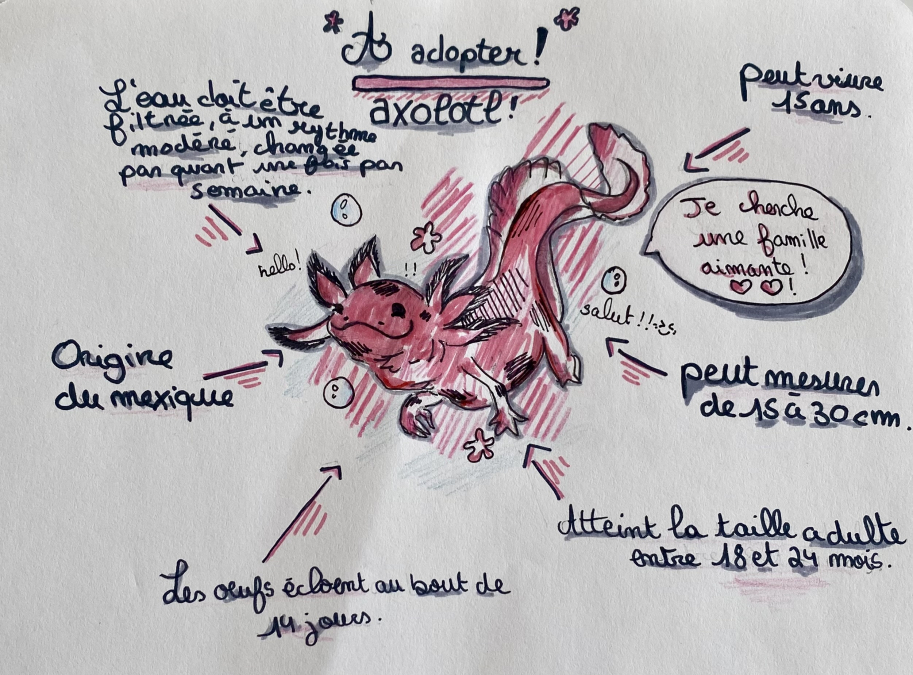 A adopter !
axolotl !
L'eau doit être
filtrée, à un rythme
modéré, changée
par quart une fois par
semaine.
Peut vivre
15 ans.
Je cherche
une famille
aimante !
!
hello !
!!
salut !!
Origine
du mexique
peut mesurer
de 15 à 30 cm.
Atteint la taille adulte
entre 18 et 24 mois.
Les œufs éclosent au bout de
14 jours.